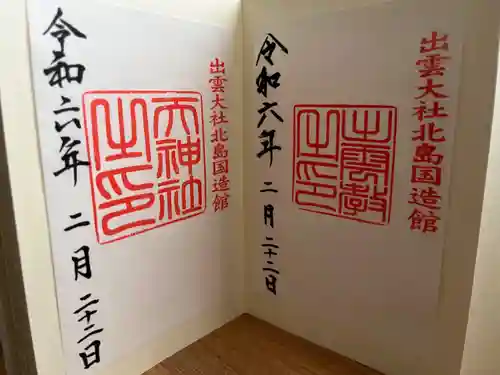 出雲大社北島国造館
出雲教之印
令和六年 二月 二十二日
出雲大社北島国造館
天神社之印
令和六年 二月 二十二日